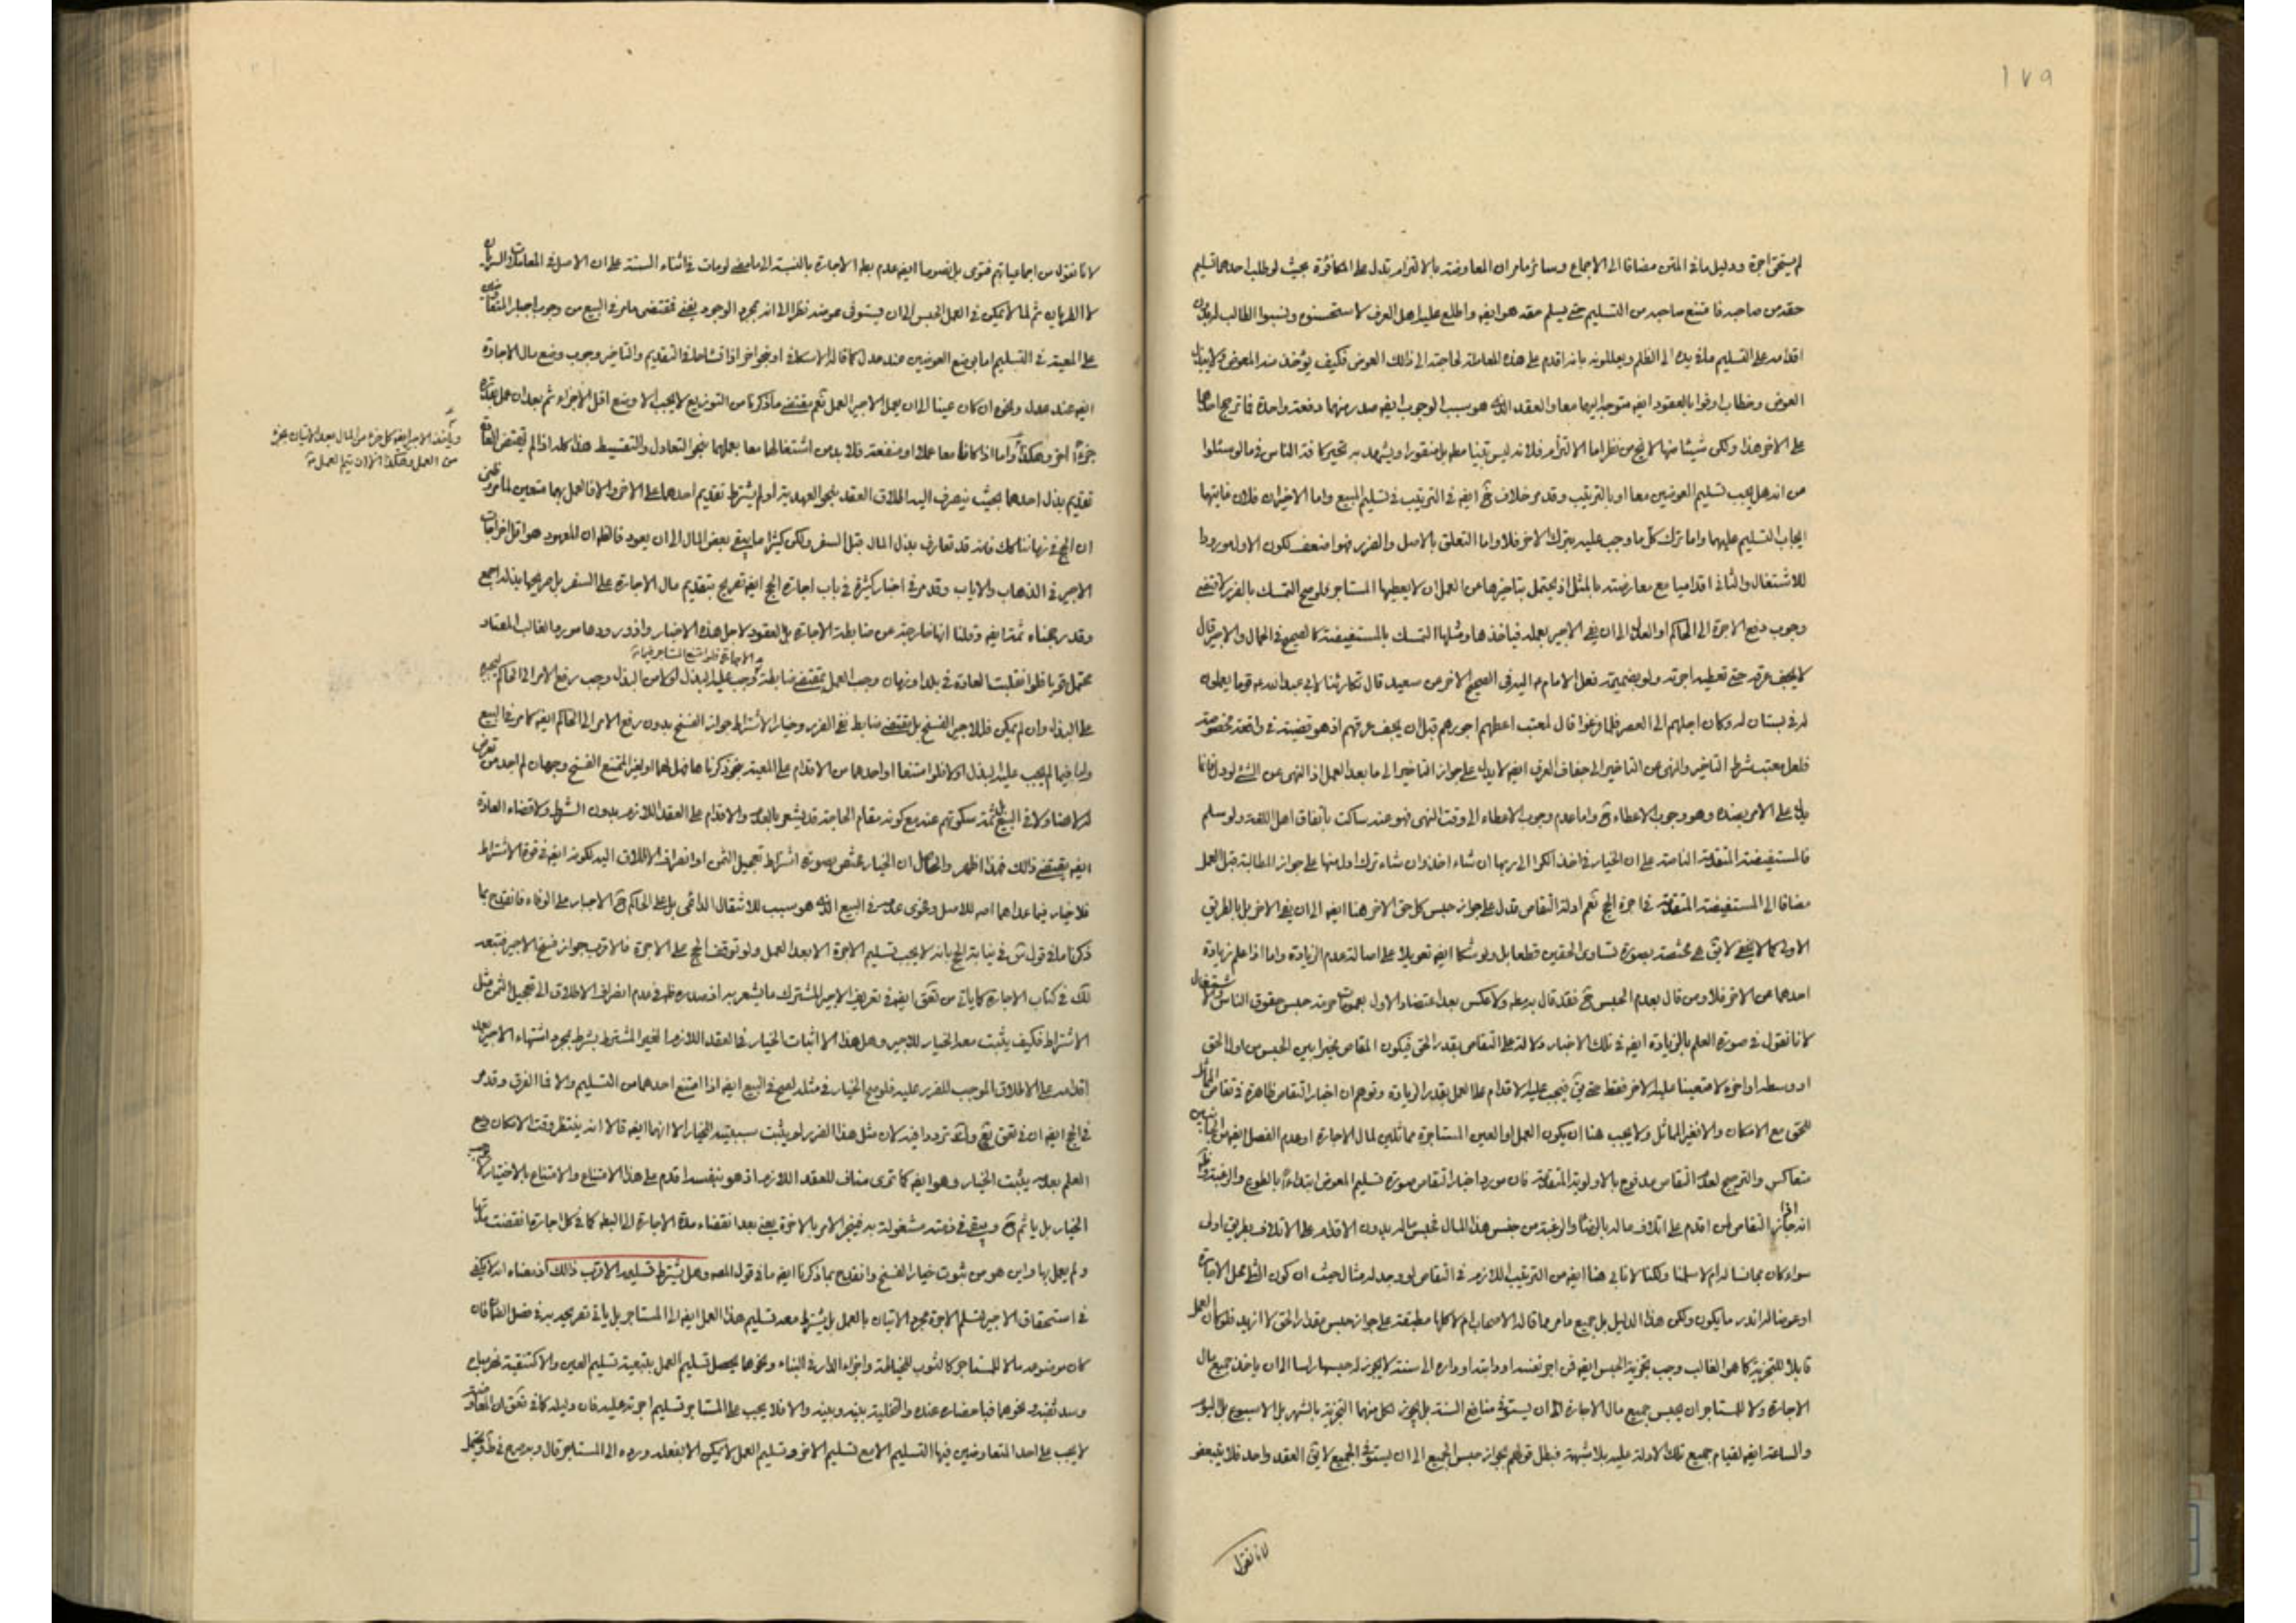 ١٧٩
لم يستحق اجرة ودليل ما في المتن مضافا الى الاجماع وسائر ما مر ان المعاوضة بالالتزام تدل على المكافئة بحيث لو طلب احدهما تسليم
حقه من صاحبه فامتنع صاحبه من التسليم حتى يسلم حقه هو ايضه واطلع عليه اهل العرف لاستحسنوه ونسبوا الطالب
اقدامه على التسليم مادة يده الى الظلم ويعللونه بانه اقدم على هذه المعاملة لحاجته الى ذلك العوض فكيف يؤخذ منه المعوض ولا
العوض وخطاب اوفوا بالعقود ايضه متوجه اليهما معا والعقد الذي هو سبب الوجوب ايضه صدر منهما دفعة واحدة فلا ترجيح
على الاخر هذا ولكن شيئا منها لا يخ من نظر اما الالتزام فلانه ليس بينا مطه بل منقورا ويشهد به تحير كافة الناس في ما لو سئلوا
من انه هل يجب تسليم العوضين معا او بالترتيب وقد مر خلاف في الترتيب في تسليم المبيع واما الاخيران فلان غايتهما
ايجاب التسليم عليهما واما ترك كل ما وجب عليه بترك الاخر فلا واما التعلق بالاصل والضرر فهو اضعف لكون الاول مورودا
للاشتغال والثاني اقداميا مع معارضته بالمثل اذ يحتمل بتاخيرها من العمل ان لا يعطيها المستاجر ولو صح التمسك بالضرر لاقتضى
وجوب دفع الاجرة الى الحاكم او العدل الى ان يفي الاجير بعمله فياخذها ومثلها التمسك بالمستفيضة كالصحيح في الحمال والاجير قال
لا يجف عرقه حتى تعطيه اجرته ولو بضميمة فعل الامام ع اليه في الصحيح الاخر من سعيد قال تكارينا لابي عبد الله ع قوما يعملون
له في بستان له وكان اجلهم الى العصر فلما فرغوا قال لمعتب اعطهم اجورهم قبل ان يجف عرقهم اذ هو قضية في واقعة مخصوصة
فلعل معتب شرط التاخير والنهي عن التاخير الى جفاف العرق ايضه لا يدل على جواز التاخير الى ما بعد العمل اذ النهي عن الشئ لو دل فانما
يدل على الامر بضده وهو وجوب الاعطاء ح واما عدم وجوب الاعطاء الى وقت النهي فهو عنه ساكت باتفاق اهل اللغة ولو سلم
فالمستفيضة المتقدمة الناصة على ان الخيار في اخذ الكرا الى ربها ان شاء اخذ وان شاء ترك اول منها على جواز المطالبة قبل العمل
مضافا الى المستفيضة المتقدمة في اجرة الحج نعم ادلة التقاص تدل على جواز حبس كل حق الاخر هنا ايضه الى ان يفي الاخر بل بالطريق
الاولى كما لا يخفى لا يق هي مختصة بصورة تساوى الحقين قطعا بل ولو شكا ايضه تعويلا على اصالة عدم الزيادة واما اذا علم زيادة
احدهما عن الاخر فلا ومن قال بعدم الحبس ح فقد قال به مطه ولا عكس بعد اعتضاد الاول بعمومات حرمة حبس حقوق الناس
لانا نقول في صورة العلم بالزيادة ايضه في تلك الاخبار دلالة على التقاص بقدر الحق فيكون المقاص مخيرا بين الحبس من اول الحق
او وسطه او اخره لا متعينا عليه الاخر فقط حتى يق فيجب عليه الاقدام على العمل بقدر الزيادة وتوهم ان اخبار التقاص ظاهرة في تقاص
للحق مع الامكان والا فغير المماثل ولا يجب هنا ان يكون العمل او العين المستاجرة مماثلين لمال الاجارة او عدم الفصل ايضه من الجانبين
متعاكس والترجيح لعدم التقاص مدفوع بالاولوية المتقدمة فان مورد اخبار التقاص صورة تسليم المعوض ابتداء بالطوع والرغبة
انه اذا جاز التقاص لمن اقدم على اتلاف ماله بالرضا والرغبة من جنس هذا المال فحبس ماله بدون الاقدام على الاتلاف بطريق اولى
سواء كان مجانسا له ام لا سلمنا ولكنا لانابي هنا ايضه من الترتيب اللازم في التقاص لو وجد له مثال حيث ان كون الشئ محل الاجارة
او عوضا له اندر ما يكون ولكن هذا الدليل بل جميع ما مر مما قاله الاصحاب ام لا كلها مطبقة على جواز حبس مقدار الحق لا ازيد فلو كان العمل
قابلا للتجزية كما هو الغالب وجب تجزية الحبس ايضه فمن اجر نفسه او دابته او داره الى سنة لا يجوز له حبسها راسا الى ان ياخذ جميع مال
الاجارة ولا للمستاجر ان يحبس جميع مال الاجارة الى ان يستوفي منافع السنة بل يجوز لكل منهما التجزية بالشهر بل الاسبوع بل اليوم
والساعة ايضه لقيام جميع تلك الادلة عليه بلا شبهة فبطل قولهم بجواز حبس الجميع الى ان يستوفي الجميع لا يق العقد واحد فلا يتبعض
لانا نقول
لانا نقول من اجماعياتهم فتوى بل نصوصا ايضه عدم بطه الاجارة بالنسبة الى ما مضى لو مات في اثناء السنة على ان الاصل في المعاملات السريان
لا الطريان ثم لما لا يمكن في العمل الحبس الى ان يستوفى عوضه نظرا الى انه بمجرد الوجود يفنى فمقتضى ما مر في البيع من وجوب اجبار المتعاوضين
على المعية في التسليم اما بوضع العوضين عند عدل كما قاله الاسكافي او بنحو اخر اذا تشاحا في التقديم والتاخير وجوب وضع مال الاجارة
ايضه عند عدل ونحوه ان كان عينا الى ان يعمل الاجير العمل نعم مقتضى ما ذكرنا من التوزيع لا يجب الا وضع اقل الاجزاء ثم بعد ان عمل بقدره
جزءا اخر وهكذا واما اذا كانا معا عملا او منفعة فلا بد من اشتغالهما معا بعملهما بنحو التعادل والتقسيط هذا كله اذا لم يقتض العادة
تقديم بذل احدهما بحيث ينصرف اليه اطلاق العقد بنحو العهدية او لم يشترط تقديم احدهما على الاخر والا فالعمل بهما متعين
ان الحج في زماننا كك فانه قد تعارف بذل المال قبل السفر ولكن كثيرا ما يبقى بعض المال الى ان يعود فالظه ان المعهود هو اقل اخراجات
الاجير في الذهاب والاياب وقد مر في اخبار كثيرة في باب اجارة الحج ايضه تصريح بتقديم مال الاجارة على السفر بل صريحها بذله اجمع
وقد رجحناه ثمة ايضه وقلنا انها خارجة عن ضابطة الاجارة بل العقود لاجل هذه الاخبار واذ ورودها مورد الغالب المعتاد
الاجارة فلو امتنع المستاجر فيما
محتمل قويا فلو انقلبت العادة في بلد او زمان وجب العمل بمقتضى ضابطة وجب عليه البذل اولا من البذل وجب رفع الامر الى الحاكم ليجبره
على البذل وان لم يمكن فللاجير الفسخ بل مقتضى ضابط نفي الضرر وخيار الاشتراط جواز الفسخ بدون رفع الامر الى الحاكم ايضه كما مر في البيع
واما فيما لم يجب عليه البذل اولا فلو امتنعا او احدهما من الاقدام على المعية بنحو ذكرنا هل لهما او لغير الممتنع الفسخ وجهان لم اجد من تعرض
له لا هنا ولا في البيع ثمة سكوتهم عنه مع كونه مقام الحاجة قد يشعر بالعدم والاقدام على العقد اللازم بدون الشرط ولا اقتضاء العادة
ايضه يقتضى ذلك فهذا اظهر والحاصل ان الخيار مختص بصورة اشتراط تعجيل الثمن او انصراف الاطلاق اليه لكونه ايضه في قوة الاشتراط
فلا خيار فيما عداهما اصه للاصل وفحوى عدمه في البيع الذي هو سبب للانتقال الدائمي بل على الحاكم ح الاجبار على الوفاء فانقدح بما
ذكرنا ما في قول ش في نيابة الحج بانه لا يجب تسليم الاجرة الا بعد العمل ولو توقف الحج على الاجرة فالاقرب جواز فسخ الاجير فتبعه
لك في كتاب الاجارة كما ياتي من تعق ايضه في تعريف الاجير المشترك ما يشعر به اذ صدره ظه في عدم انصراف الاطلاق الى تعجيل الثمن مثل
الاشتراط فكيف يثبت معه الخيار للاجير وهل هذا الا اثبات الخيار في العقد اللازم لغير المشترط بشرط بمجرد اشتهاء الاجير بعد
اقدامه على الاطلاق الموجب للضرر عليه فلو صح الخيار في مثله لصح في البيع ايضه اذا امتنع احدهما من التسليم والا فما الفرق وقد مر
في الحج ايضه ان في تعق تردد ا فيه لان مثل هذا الضرر لم يثبت سببيته للخيار الا انهما ايضه قالا انه ينتظر وقت الامكان ومع
العلم بعدمه يثبت الخيار وهو ايضه كما ترى مناف للعقد اللازم اذ هو بنفسه اقدم على هذا الامتناع والامتناع بالاختيار لا يوجب
الخيار بل ياثم ح ويبقى في ذمته مشغولة به فينجر الامر بالاخرة يعنى بعد انقضاء مدة الاجارة الى البطه كما في كل اجارة انقضت مدتها
ولم يعمل بها واين هو من ثبوت خيار الفسخ وانقدح بما ذكرنا ايضه ما في قول المصه وهل يشترط تسليمه الاقرب ذلك اذ معناه انه لا يكفي
في استحقاق الاجير لتسلم الاجرة مجرد الاتيان بالعمل بل يشترط معه تسليم هذا العمل ايضه الى المستاجر بل ياتي تصريحه به في فصل الضمان فان
كان موضوعه مالا للمستاجر كالثوب للخياطة واجزاء الدار في البناء ونحوها يحصل تسليم العمل بتبعية تسليم العين والا كتنقية نحو مياه
وسد ثقبه ونحوهما فباحضاره عنده والتخلية بينه وبينه والا فلا يجب على المستاجر تسليم اجرته عليه فان دليله كما في تعق ان المعاوضة
لا يجب على احد المتعاوضين فيها التسليم الا مع تسليم الاخر وتسليم العمل لا يمكن الا بفعله ورده الى المستاجر قال وبه صرح في ط ويحتمل
وياخذ الاجير ايضه كل جزء من المال بعد الاتيان بجزء
من العمل وهكذا الى ان يتم العمل